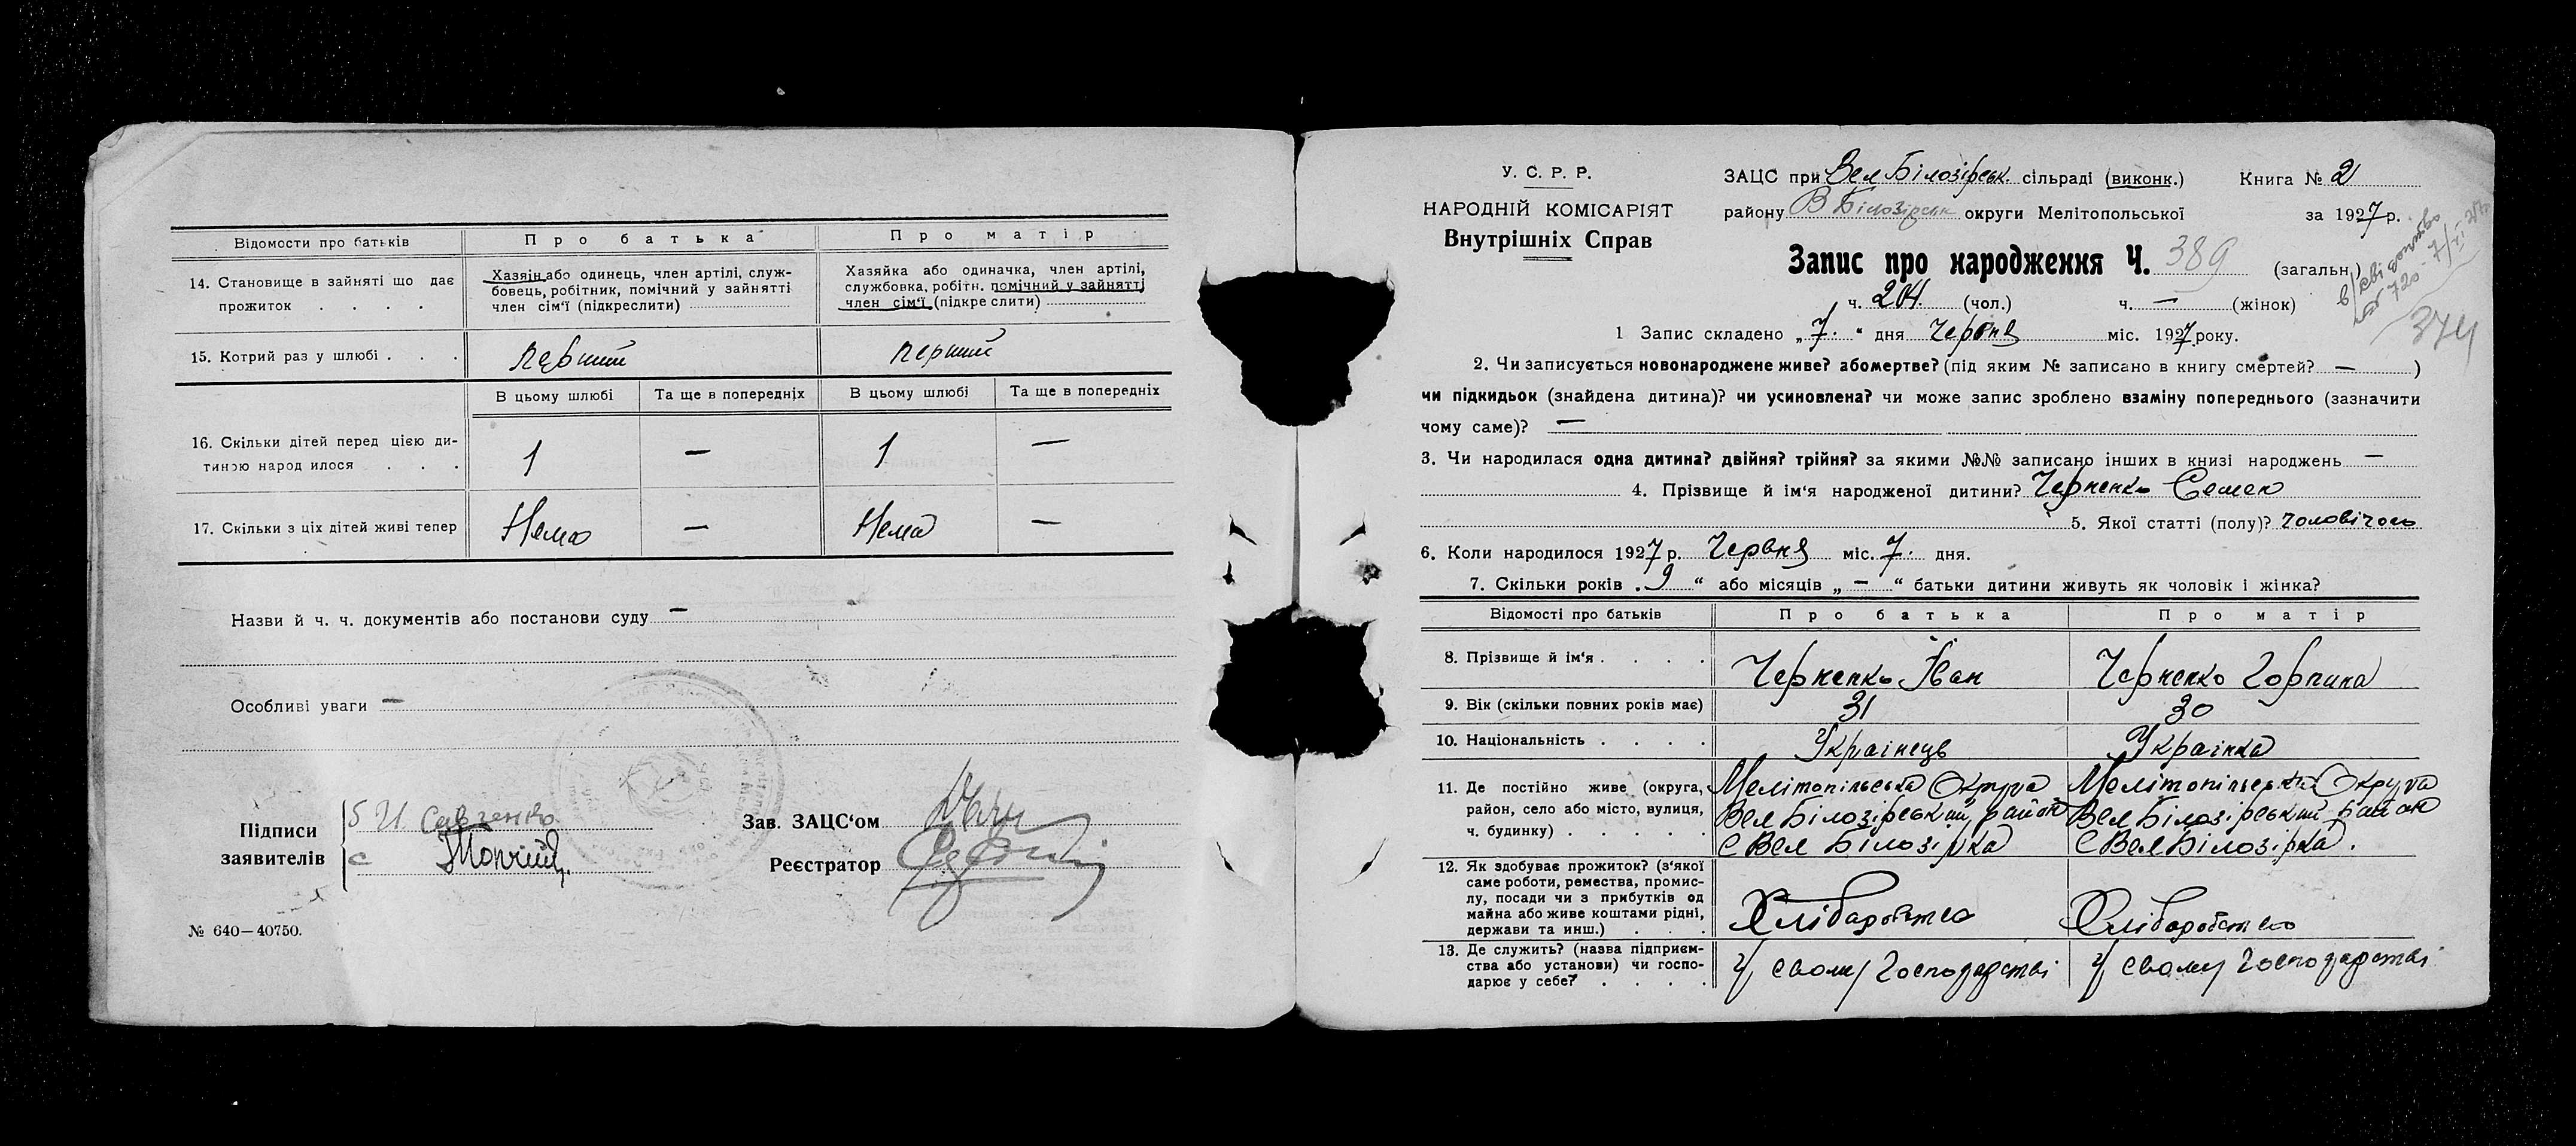 Відомости про батьків
Про батька
Про матір
14. Становище в зайняті що дає
прожиток . . . .
Хазяїн або одинець, член артілі, служ-
бовець, робітник, помічний у зайнятті
член сім'ї (підкреслити)
Хазяйка або одиначка, член артілі,
службовка, робітн. помічний у зайнятті
член сім'ї (підкре слити)
15. Котрий раз у шлюбі . . .
перший
перший
В цьому шлюбі
Та ще в попередніх
В цьому шлюбі
Та ще в попередніх
16. Скільки дітей перед цією ди-
тиною народ илося . . .
1 — 1 —
17. Скільки з ціх дітей живі тепер
Нема — Нема —
Назви й ч. ч. документів або постанови суду —
Особливі уваги —
Підписи
заявителів
Савченко
Зав. ЗАЦС'ом
Реєстратор
№ 640—40750.
У. С. Р. Р.
НАРОДНІЙ КОМІСАРІЯТ
Внутрішніх Справ
ЗАЦС при Вел Білозірськ. сільраді (виконк.) Книга № 2
району В Білозірськ округи Мелітопольської за 1927 р.
Запис про народження Ч. 389 (загальн.)
ч. 204. (чол.) ч. — (жінок)
374
1 Запис складено „7.“ дня Червня міс. 1927 року.
2. Чи записується новонароджене живе? абомертве? (під яким № записано в книгу смертей? — )
чи підкидьок (знайдена дитина)? чи усиновлена? чи може запис зроблено взаміну попереднього (зазначити
чому саме)? —
3. Чи народилася одна дитина? двійня? трійня? за якими №№ записано інших в книзі народжень —
4. Прізвище й ім'я народженої дитини? Черненко Семен
5. Якої статті (полу)? чоловічого
6. Коли народилося 1927 р. Червня міс. 7. дня.
7. Скільки років „9“ або місяців „—“ батьки дитини живуть як чоловік і жінка?
Відомості про батьків
Про батька
Про матір
8. Прізвище й ім'я . . . .
Черненко Іван
Черненко Горпина
9. Вік (скільки повних років має)
31
30
10. Національність . . . .
Українець
Українка
11. Де постійно живе (округа,
район, село або місто, вулиця,
ч. будинку) . . . . .
Мелітопільська Округа
Вел Білозірський район
С Вел Білозірка
Мелітопільська Округа
Вел Білозірський район
С Вел Білозірка.
12. Як здобуває прожиток? (з'якої
саме роботи, ремества, промис-
лу, посади чи з прибутків од
майна або живе коштами рідні,
держави та инш.) . . .
Хліборобство
Хліборобство
13. Де служить? (назва підприєм-
ства або установи) чи госпо-
дарює у себе? . . . .
У свому Господарстві
У свому Господарстві